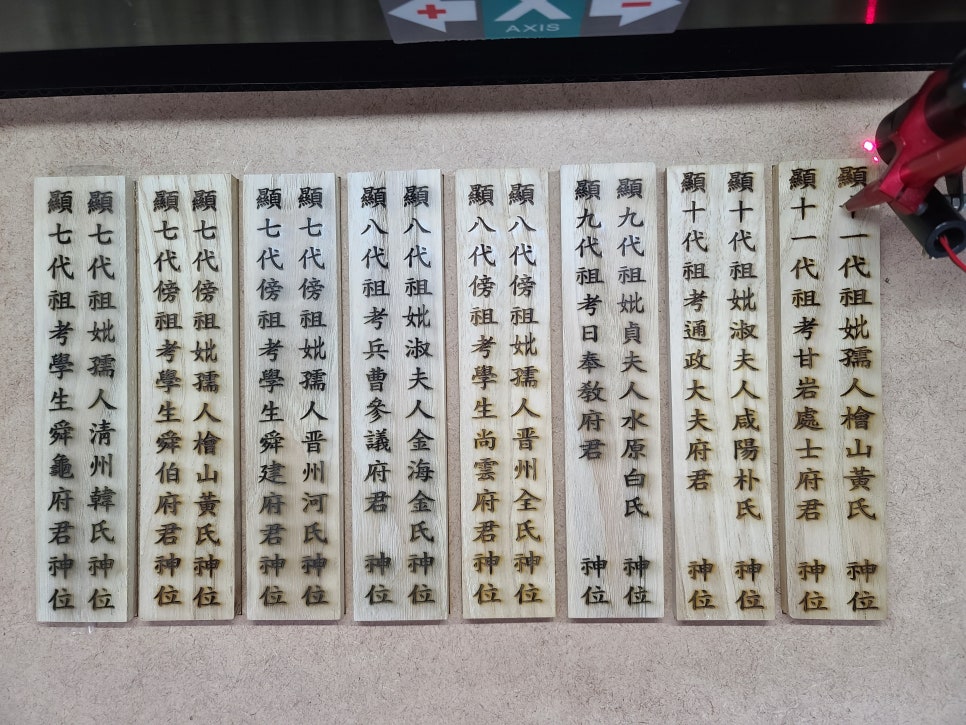 +
−
AXIS
顯七代祖考學生舜龜府君神位
顯七代祖妣孺人清州韓氏神位
顯七代傍祖考學生舜伯府君神位
顯七代傍祖妣孺人檜山黃氏神位
顯七代傍祖考學生舜建府君神位
顯七代傍祖妣孺人晋州河氏神位
顯八代祖考兵曹參議府君 神位
顯八代祖妣淑夫人金海金氏神位
顯八代傍祖考學生尚雲府君神位
顯八代傍祖妣孺人晋州全氏神位
顯九代祖考日奉敎府君 神位
顯九代祖妣貞夫人水原白氏 神位
顯十代祖考通政大夫府君 神位
顯十代祖妣淑夫人咸陽朴氏 神位
顯十一代祖考甘岩處士府君 神位
顯一代祖妣孺人檜山黃氏 神位